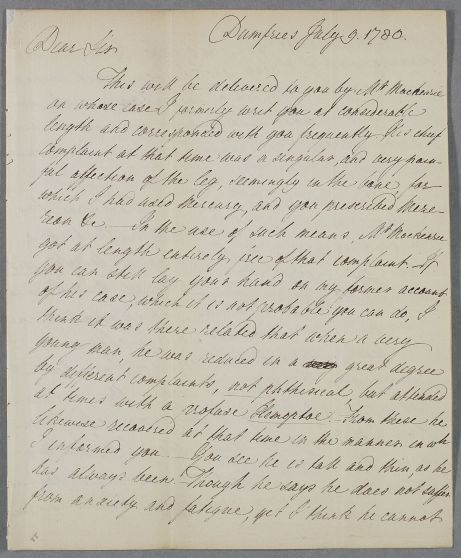 Dumfries July 9. 1780.
Dear Sir
This will be delivered to you by Mr Mackenzie
on whose case I formerly writ you at considerable
length and corresponded with you frequently. His chief
complaint at that time was a singular, and very pain-
ful affection of the leg, seemingly in the bone, for
which I had used Mercury, and you prescribed Meze-
reon &c. — In the use of such means, Mr Mackenzie
got at length entirely free of that complaint. If
you can still lay your hand on my former account
of his case, which it is not probable you can do, I
think it was there related that when a very
young man, he was reduced in a great degree
by different complaints, not phthisical, but attended
at times with a profuse Hemoptoe. From these he
likewise recovered at that time in the manner in wh
I informed you. — You see he is tall and thin, as he
has always been. Though he says he does not suffer
from anxiety and fatigue, yet I think he cannot